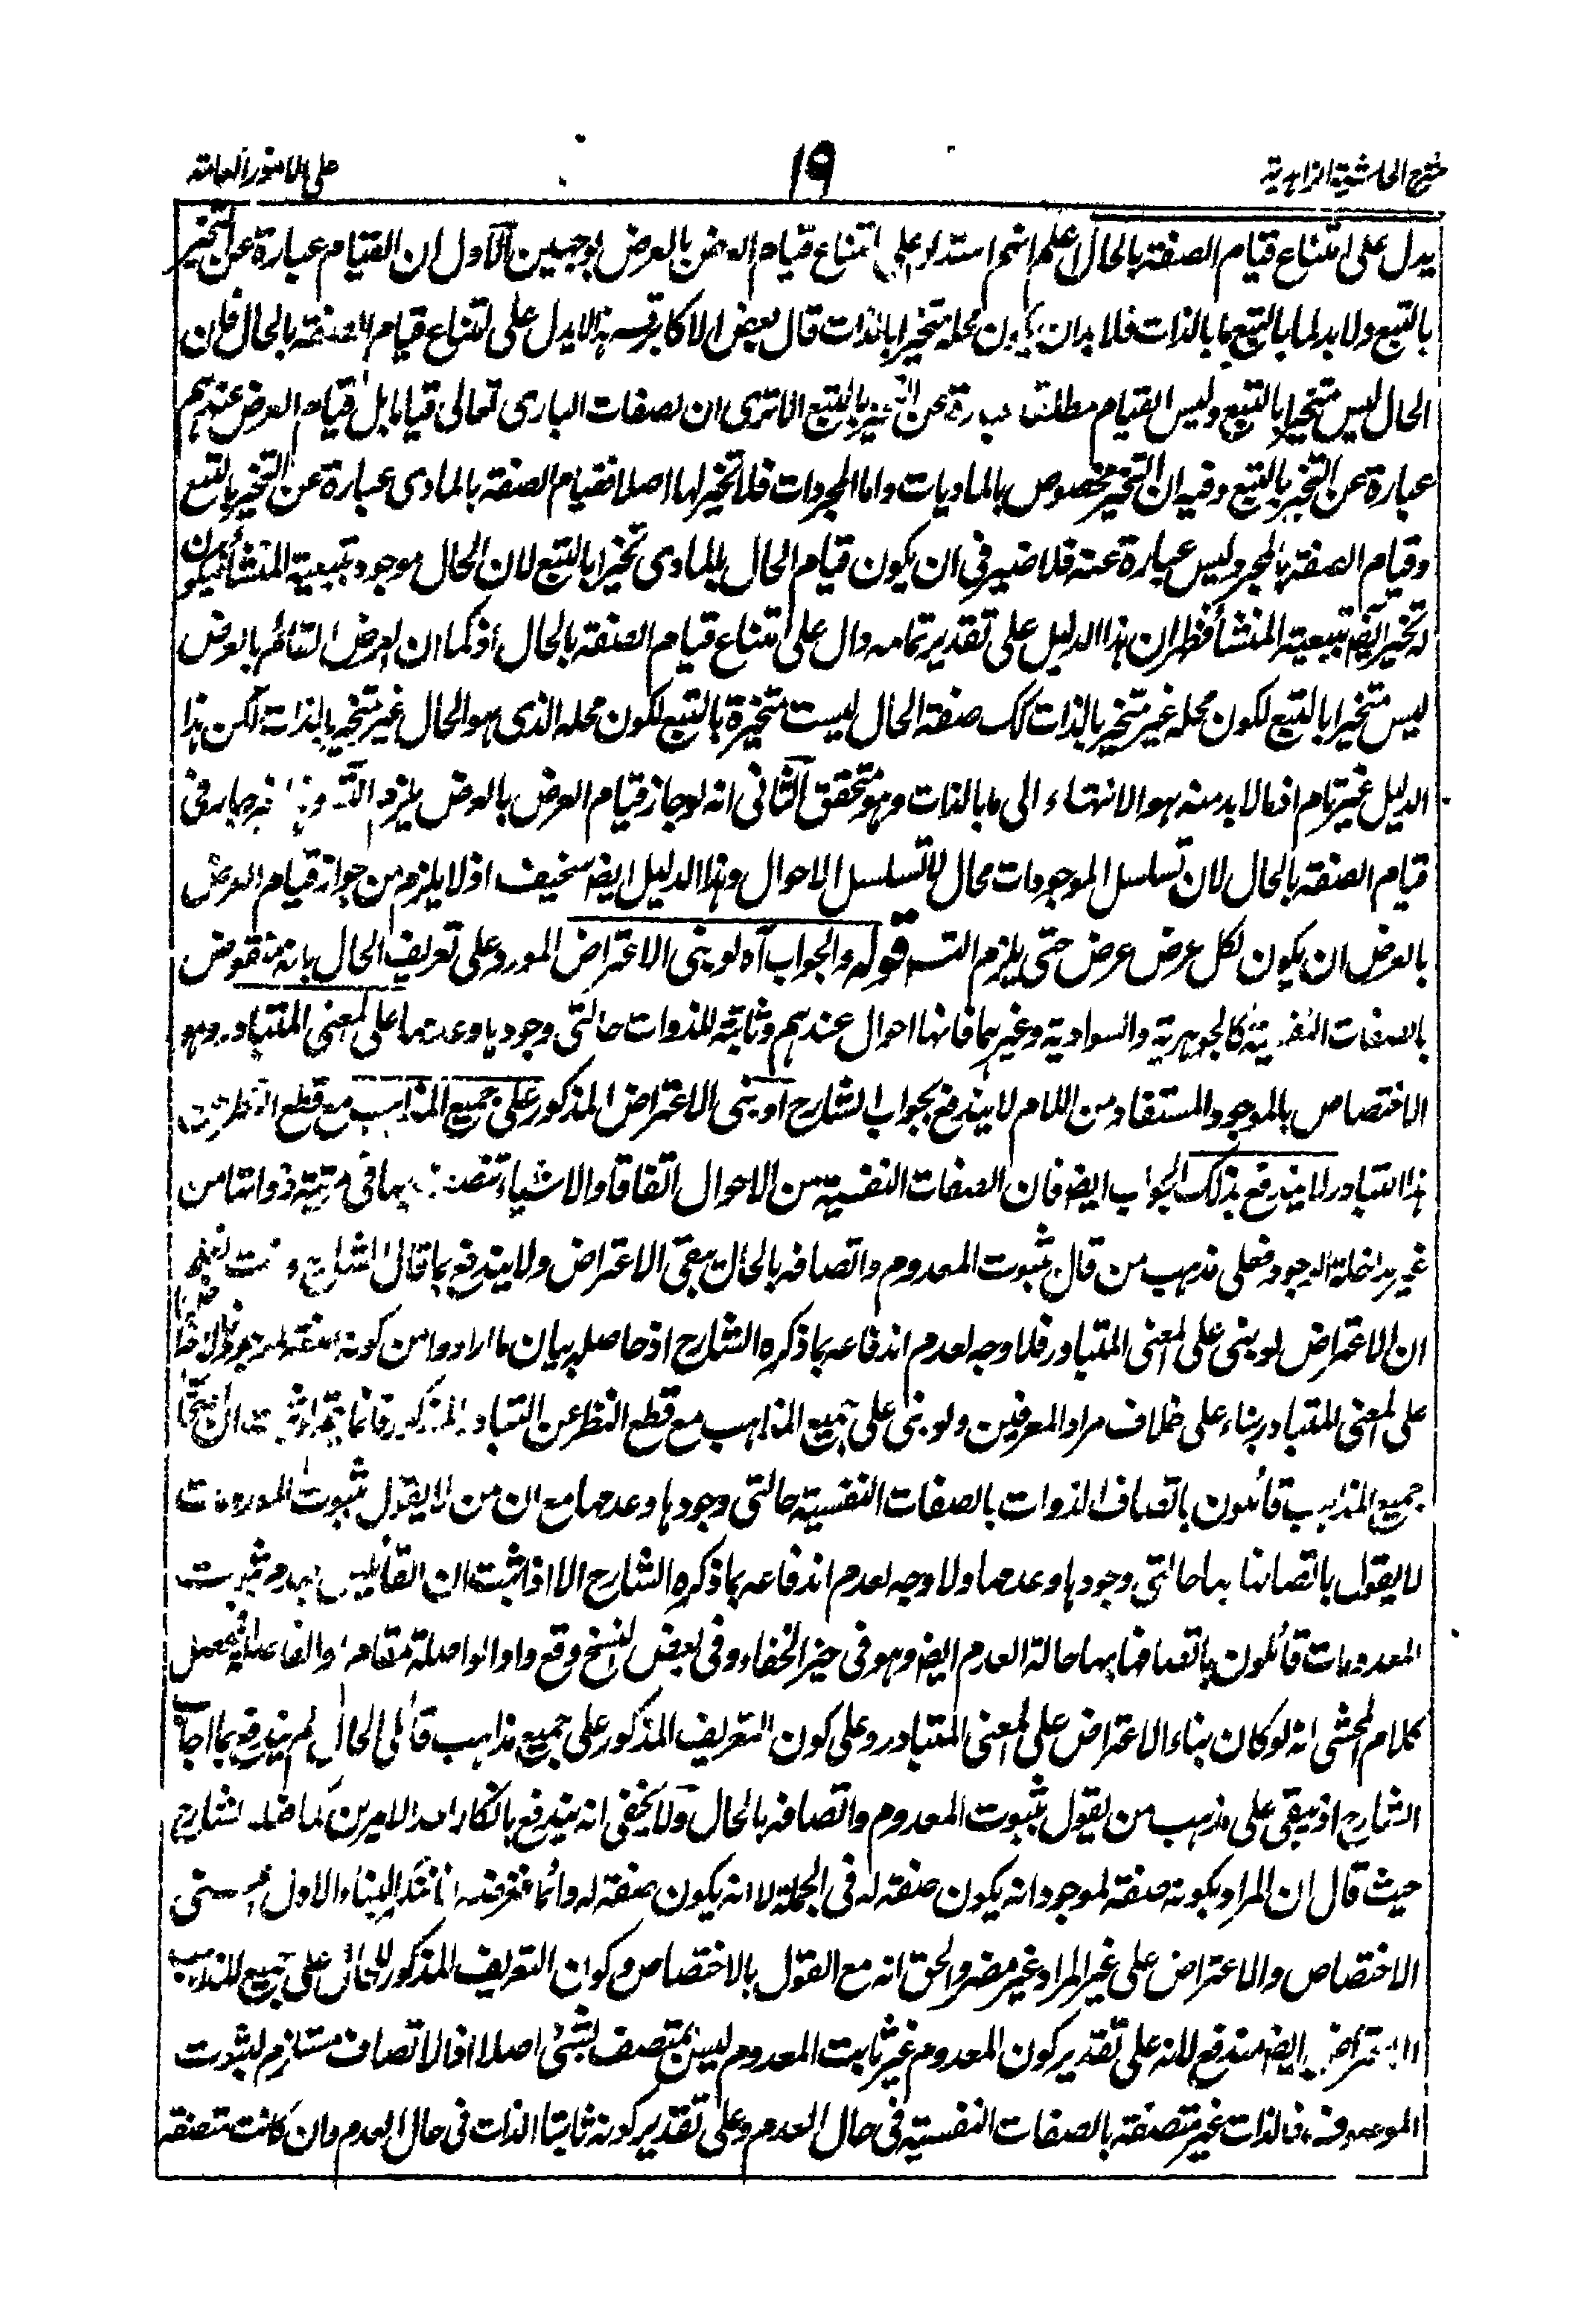 شرح الحاشية الزاهدية
١٩
على الامور العامة
يدل على امتناع قيام الصفة بالحال اعلم انهم استدلوا على امتناع قيام العرض بالعرض بوجهين الاول ان القيام عبارة عن التحيز
بالتبع ولا بد لما بالتبع مما بالذات فلا بد ان يكون محله متحيزا بالذات قال بعض الاكابر قده هذا لا يدل على امتناع قيام الصفة بالحال فان
الحال ليس متحيزا بالتبع وليس القيام مطلقا عبارة عن التحيز بالتبع الا ترى ان لصفات البارى تعالى قياما بل قيام العرض عندهم
عبارة عن التحيز بالتبع وفيه ان التحيز مخصوص بالماديات واما المجردات فلا تحيز لها اصلا فقيام الصفة بالمادى عبارة عن التحيز بالتبع
وقيام الصفة بالمجرد ليس عبارة عنه فلا ضير فى ان يكون قيام الحال بالمادى تحيزا بالتبع لان الحال موجود بتبعية المنشأ فيكون
له تحيز ايضا بتبعية المنشأ فظهر ان هذا الدليل على تقدير تمامه دال على امتناع قيام الصفة بالحال اذ كما ان العرض القائم بالعرض
ليس متحيزا بالتبع لكون محله غير متحيز بالذات كك صفة الحال ليست متحيزة بالتبع لكون محله الذى هو الحال غير متحيز بالذات لكن هذا
الدليل غير تام اذ ما لا بد منه هو الانتهاء الى ما بالذات وهو متحقق الثانى انه لو جاز قيام العرض بالعرض يلزم التسـ وهذا غير جار فى
قيام الصفة بالحال لان تسلسل الموجودات محال لا تسلسل الاحوال وهذا الدليل ايضا سخيف اذ لا يلزم من جواز قيام العرض
بالعرض ان يكون لكل عرض عرض حتى يلزم التسـ قوله والجواب آه لو بنى الاعتراض المورد على تعريف الحال بانه منقوض
بالصفات النفسية كالجوهرية والسوادية وغيرهما فانها احوال عندهم وثابتة للذوات حالتى وجودها وعدمها على المعنى المتبادر وهو
الاختصاص بالموجود المستفاد من اللام لا يندفع بجواب الشارح او بنى الاعتراض المذكور على جميع المذاهب مع قطع النظر عن
هذا التبادر لا يندفع بذلك الجواب ايضا فان الصفات النفسية من الاحوال اتفاقا والاشياء تتصف بها فى مرتبة ذواتها من
غير مداخلة الوجود فعلى مذهب من قال بثبوت المعدوم واتصافه بالحال يبقى الاعتراض ولا يندفع بما قال الشارح وانت تعلم
ان الاعتراض لو بنى على المعنى المتبادر فلا وجه لعدم اندفاعه بما ذكره الشارح اذ حاصله بيان ما ارادوا من كونه صفة لموجود
على المعنى المتبادر بناء على خلاف مراد المعرفين ولو بنى على جميع المذاهب مع قطع النظر عن التبادر المذكور فانما يتم لو ثبت ان
جميع المذاهب قائلون باتصاف الذوات بالصفات النفسية حالتى وجودها وعدمها مع ان من لا يقول بثبوت المعدومات
لا يقول باتصافها بها حالتى وجودها وعدمها ولا وجه لعدم اندفاعه بما ذكره الشارح الا اذا ثبت ان القائلين بعدم ثبوت
المعدومات قائلون باتصافها بها حالة العدم ايضا وهو فى حيز الخفاء وفى بعض النسخ وقع واو الواصلة مقام او الفاصلة فمحصل
كلام المحشى انه لو كان بناء الاعتراض على المعنى المتبادر وعلى كون التعريف المذكور على جميع مذاهب قائلى الحال لم يندفع بما اجاب
الشارح اذ يبقى على مذهب من يقول بثبوت المعدوم واتصافه بالحال ولا يخفى انه يندفع بانكار احد الامرين كما فعله الشارح
حيث قال ان المراد بكونه صفة لموجود انه يكون صفة له فى الجملة لا انه يكون صفة له دائما فغرضه انكار البناء الاول اعنى
الاختصاص والاعتراض على غير المراد غير مضر والحق انه مع القول بالاختصاص وكون التعريف المذكور للحال على جميع المذاهب
الاعتراض ايضا مندفع لانه على تقدير كون المعدوم غير ثابت المعدوم ليس بمتصف بشئ اصلا اذ الاتصاف مستلزم لثبوت
الموصوف فالذات غير متصفة بالصفات النفسية فى حال العدم وعلى تقدير كونه ثابتا الذات فى حال العدم وان كانت متصفة